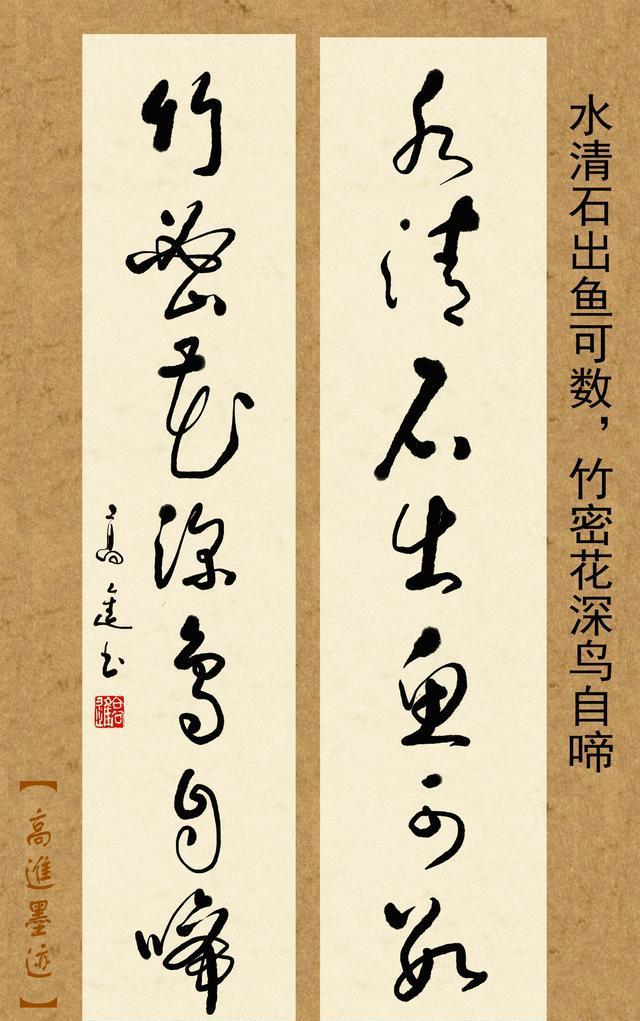 水清石出鱼可数，竹密花深鸟自啼
水清石出魚可數
竹密花深鳥自啼
高進书
【高進墨迹】